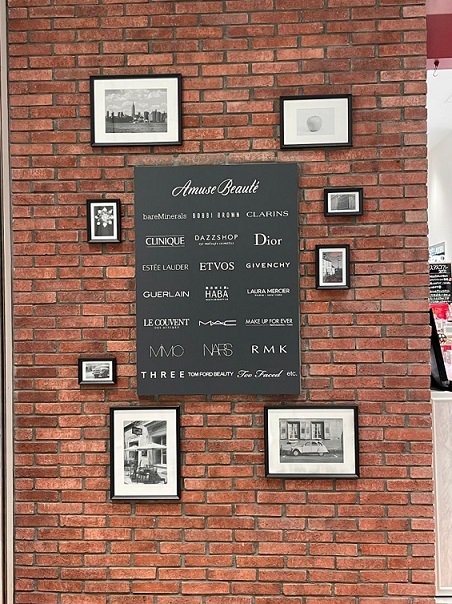 Amuse Beauté
bareMinerals BOBBI BROWN CLARINS
CLINIQUE DAZZSHOP Dior
ESTĒE LAUDER ETVOS GIVENCHY
GUERLAIN HABA LAURA MERCIER
LE COUVENT MAC MAKE UP FOR EVER
MiMC NARS RMK
THREE TOM FORD BEAUTY Too Faced etc.